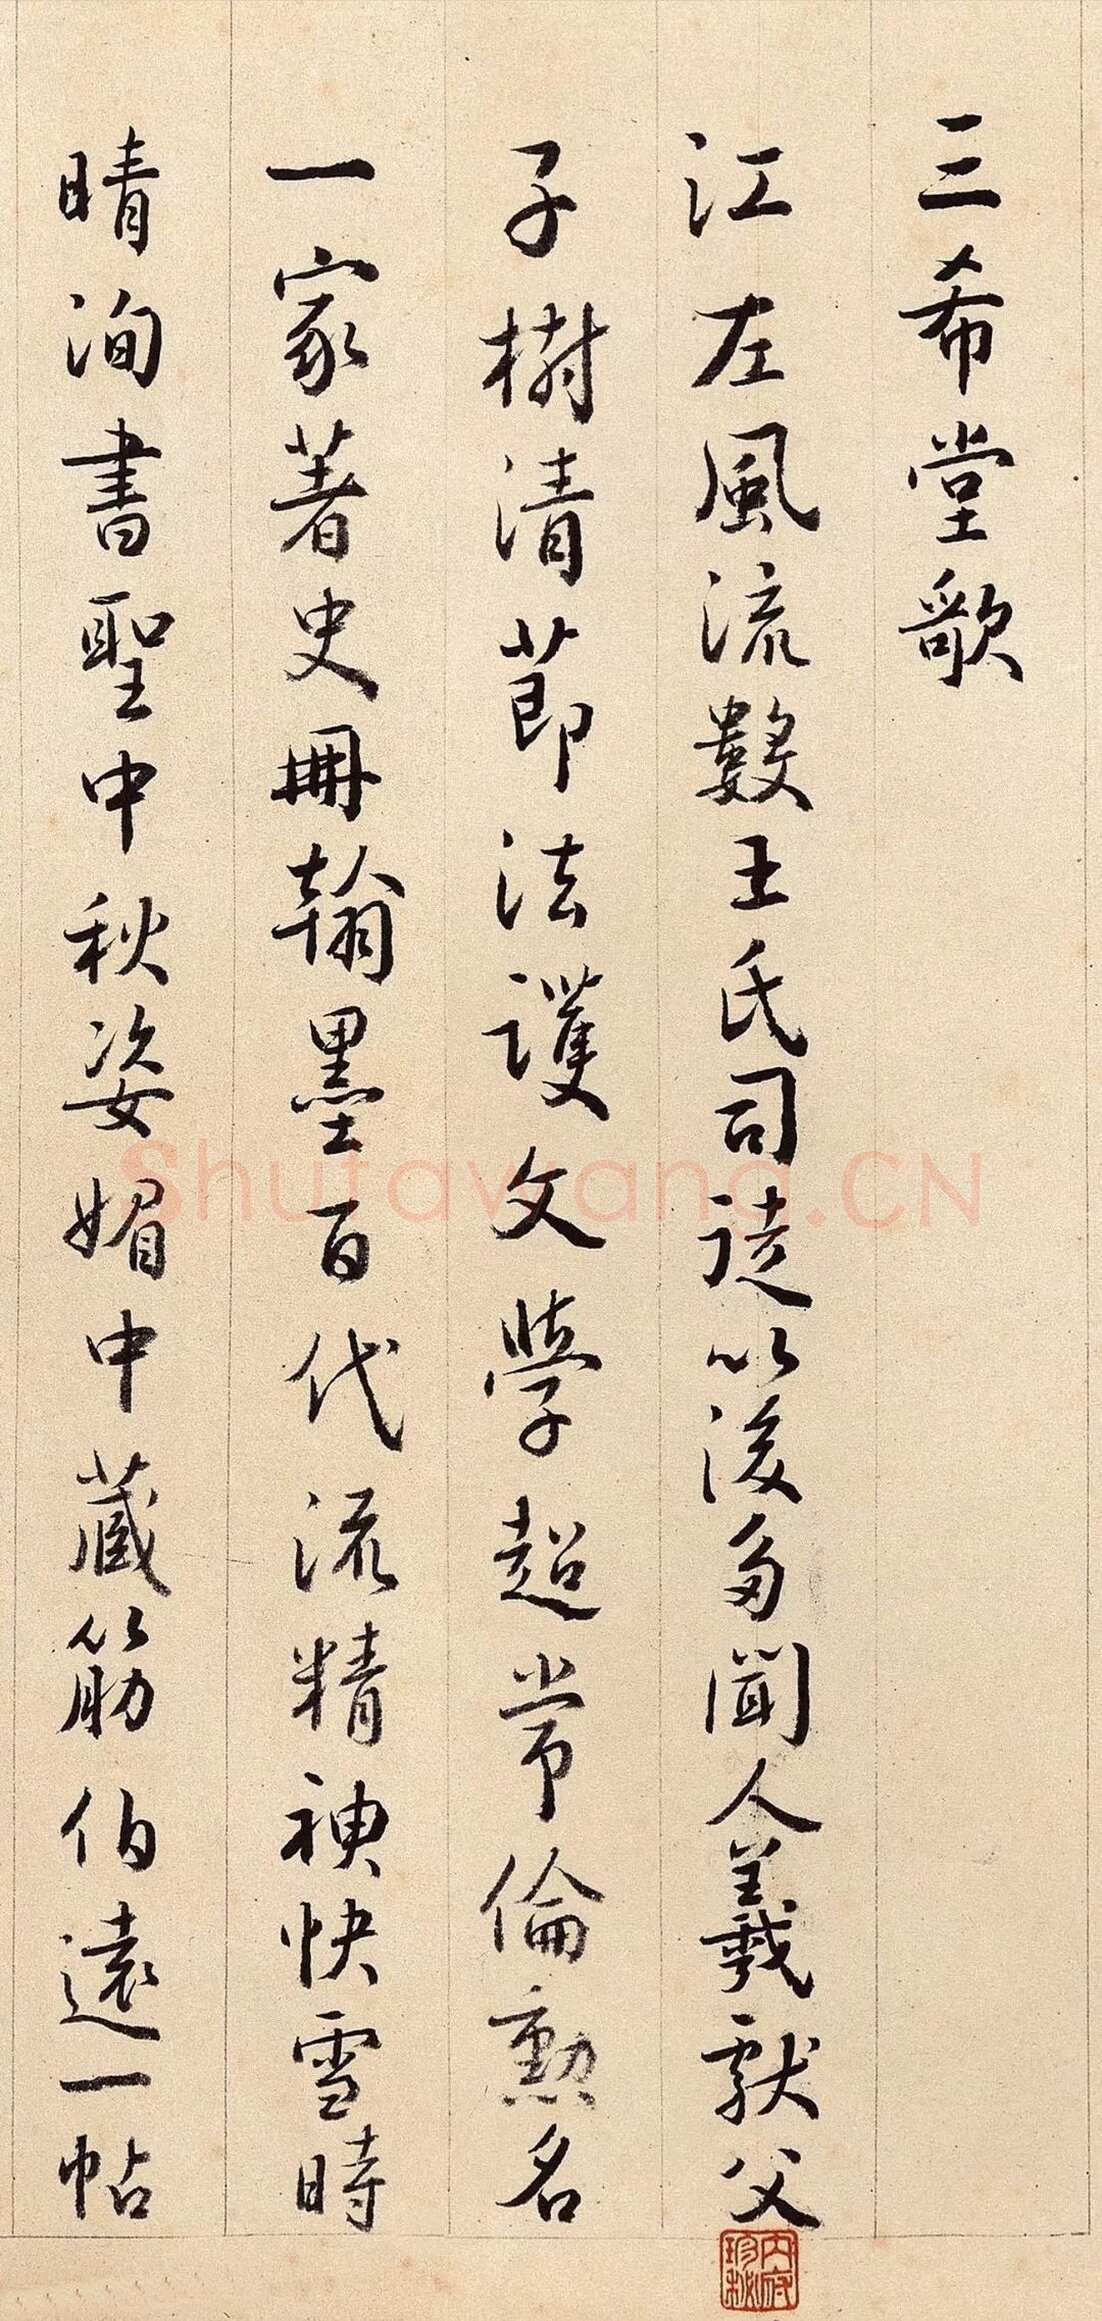 三希堂歌
江左風流數王氏司徒以後多聞人羲獻父
子樹清節法護文學超常倫勳名
一家著史冊翰墨百代流精神快雪時
晴洵書聖中秋姿媚中藏筋伯遠一帖
內府珍秘
Shufawang.CN